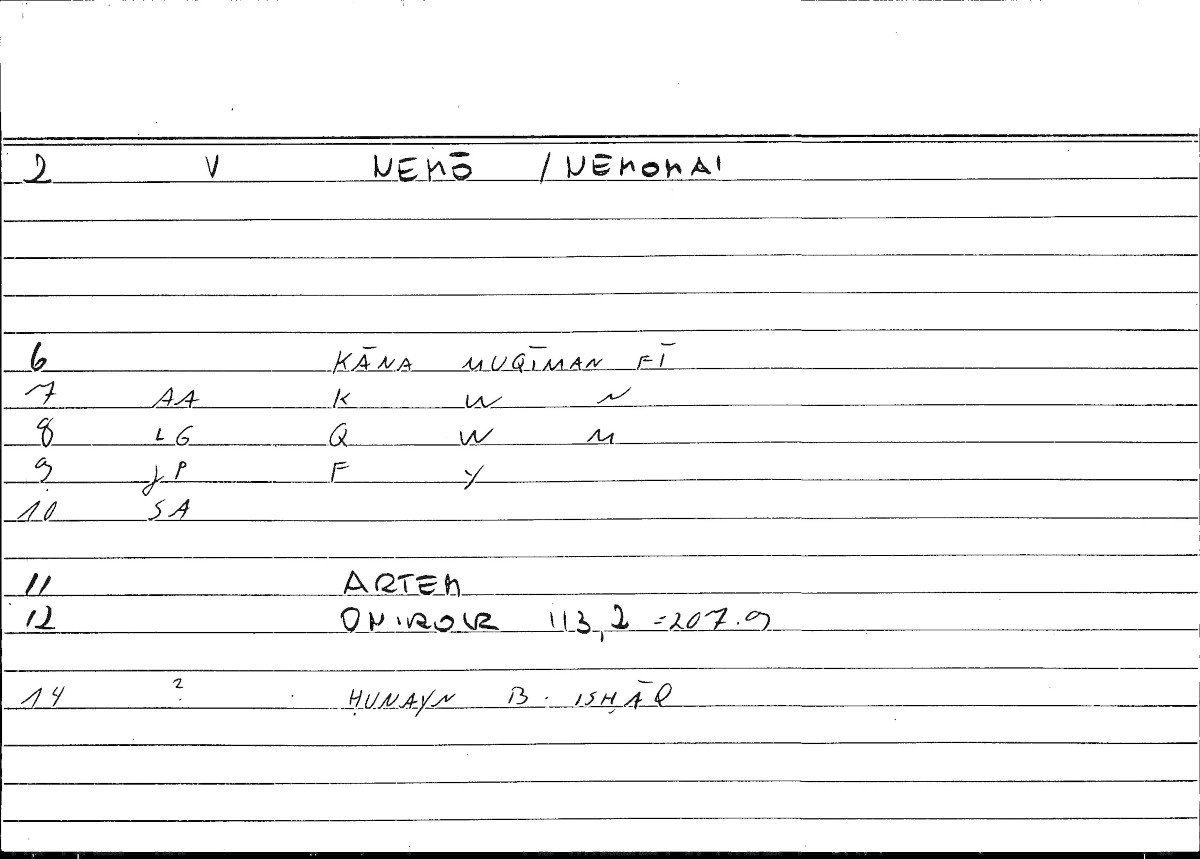 2 V NEMŌ / NEMOMAI
6 KĀNA MUQĪMAN FĪ
7 AA K W N
8 LG Q W M
9 JP F Y
10 SA
11 ARTEM
12 ONIROCR 113,2 =207.9
14 ? ḤUNAYN B. ISḤĀQ